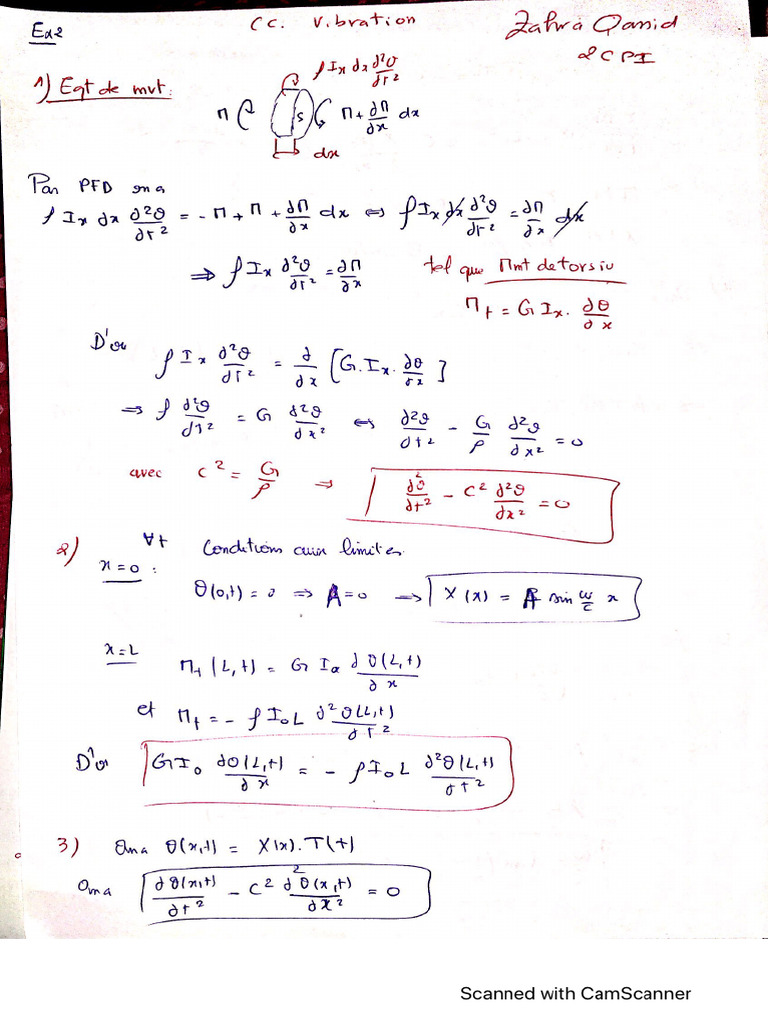 Ex2
CC. Vibration
Zahra Qamid
2CPI
1) Eqt de mvt:
ρ Ix dx ∂²θ/∂t²
M
S
M + ∂M/∂x dx
dx
Par PFD on a
ρ Ix dx ∂²θ/∂t² = - M + M + ∂M/∂x dx ⇔ ρ Ix dx ∂²θ/∂t² = ∂M/∂x dx
⇒ ρ Ix ∂²θ/∂t² = ∂M/∂x
tel que Mmt de torsio
Mt = G Ix. ∂θ/∂x
D'ou
ρ Ix ∂²θ/∂t² = ∂/∂x [G. Ix. ∂θ/∂x]
⇒ ρ ∂²θ/∂t² = G ∂²θ/∂x² ⇔ ∂²θ/∂t² - G/ρ ∂²θ/∂x² = 0
avec C² = G/ρ ⇒ ∂²θ/∂t² - C² ∂²θ/∂x² = 0
2) ∀t Conditions aux limites
x = 0 :
θ(0,t) = 0 ⇒ A = 0 → X(x) = A sin ω/c x
x = L
Mt (L,t) = G Ix ∂θ(L,t)/∂x
et Mt = - ρ I₀ L ∂²θ(L,t)/∂t²
D'où G I₀ ∂θ(L,t)/∂x = - ρ I₀ L ∂²θ(L,t)/∂t²
3) On a θ(x,t) = X(x). T(t)
On a ∂θ(x,t)/∂t² - C² ∂²θ(x,t)/∂x² = 0
Scanned with CamScanner